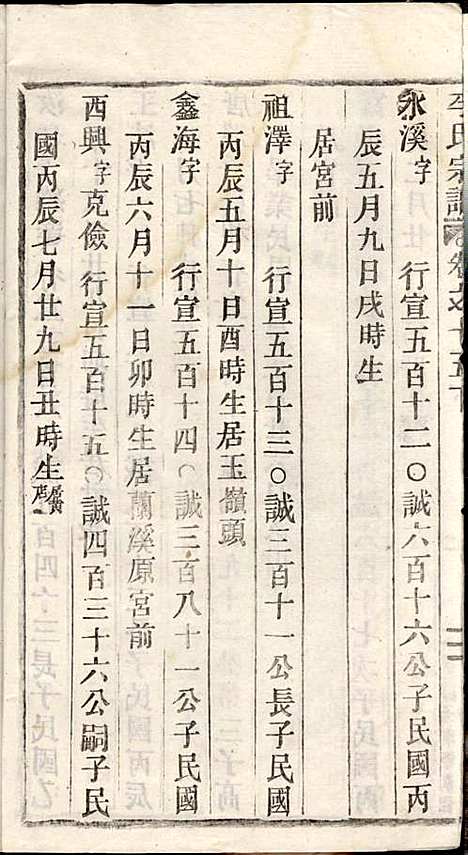 李氏宗譜 卷之十五下
永溪字 行宣五百十二○誠六百十六公子民國丙
辰五月九日戌時生
居宮前
祖澤字 行宣五百十三○誠三百十一公長子民國
丙辰五月十日酉時生居玉嶺頭
鑫海字 行宣五百十四○誠三百八十一公子民國
丙辰六月十一日卯時生居蘭溪原宮前
西興字克儉 行宣五百十五○誠四百三十六公嗣子民
國丙辰七月廿九日丑時生